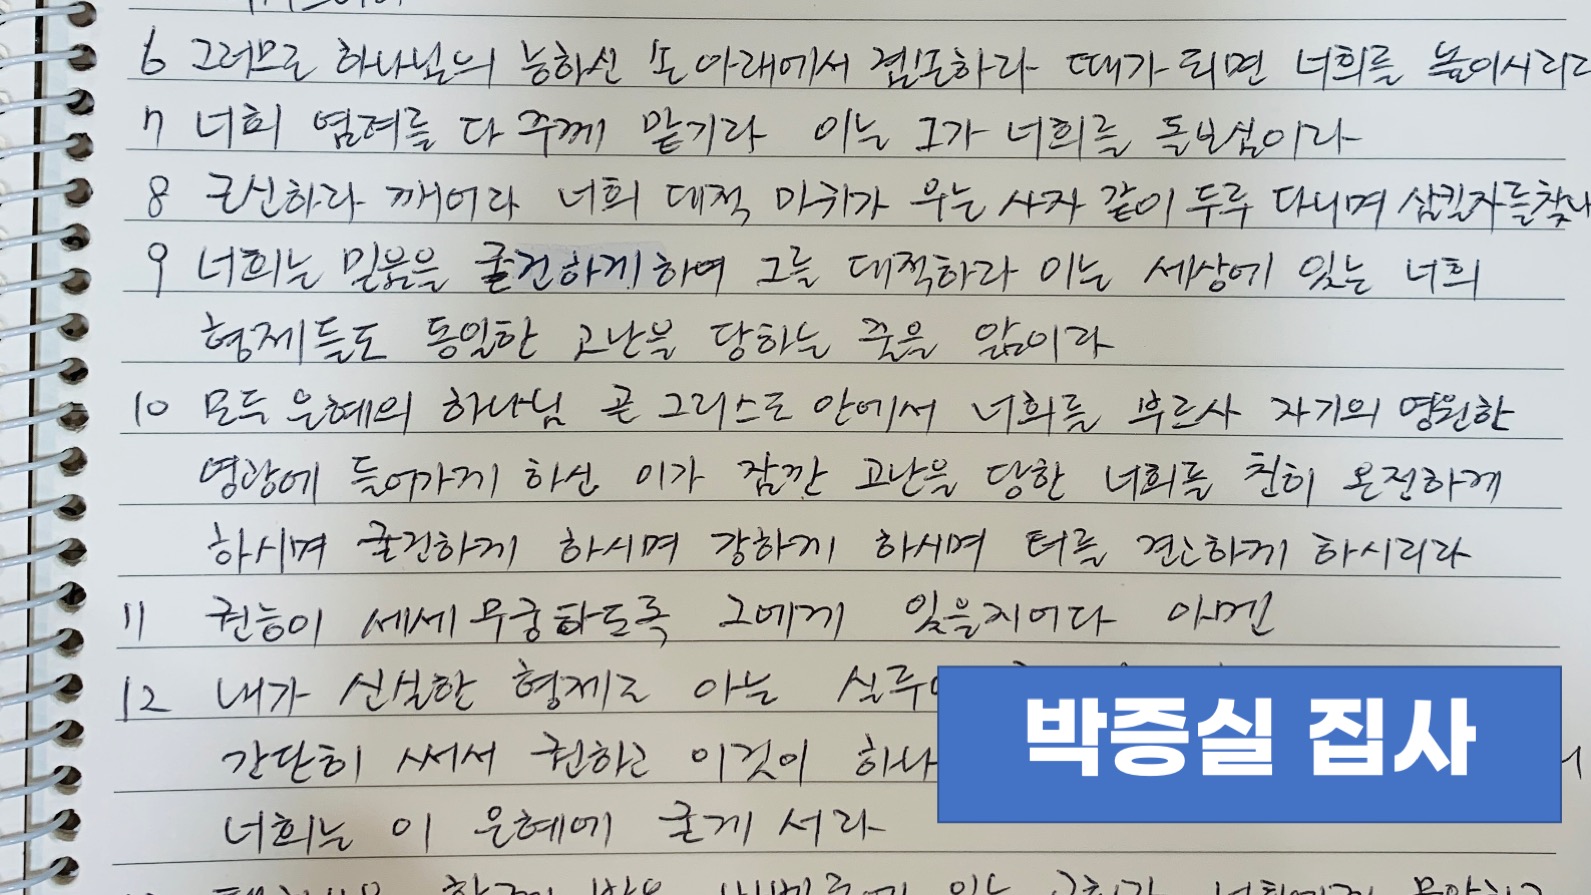 6 그러므로 하나님의 능하신 손 아래에서 겸손하라 때가 되면 너희를 높이시리라
7 너희 염려를 다 주께 맡기라 이는 그가 너희를 돌보심이라
8 근신하라 깨어라 너희 대적 마귀가 우는 사자 같이 두루 다니며 삼킬자를찾나
9 너희는 믿음을 굳건하게 하여 그를 대적하라 이는 세상에 있는 너희
형제들도 동일한 고난을 당하는 줄을 앎이라
10 모두 은혜의 하나님 곧 그리스도 안에서 너희를 부르사 자기의 영원한
영광에 들어가게 하신 이가 잠깐 고난을 당한 너희를 친히 온전하게
하시며 굳건하게 하시며 강하게 하시며 터를 견고하게 하시리라
11 권능이 세세 무궁하도록 그에게 있을지어다 아멘
12 내가 신실한 형제로 아는 실루
간단히 써서 권하고 이것이 하나
너희는 이 은혜에 굳게 서라
박증실 집사